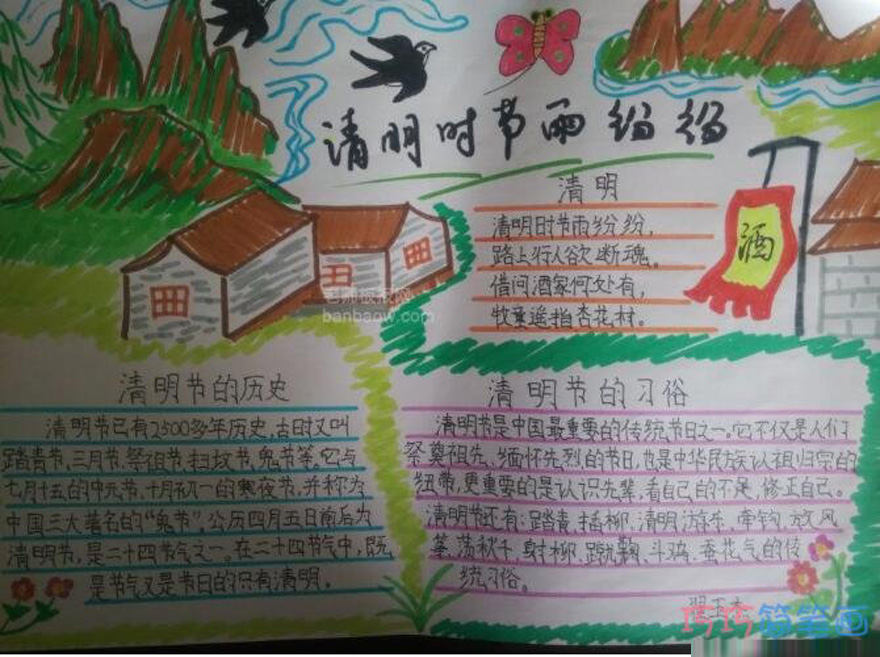 清明时节雨纷纷
清明
清明时节雨纷纷,
路上行人欲断魂。
借问酒家何处有,
牧童遥指杏花村。
酒
老师板报网
banbaow.com
清明节的历史
清明节已有2500多年历史,古时又叫
踏青节、三月节、祭祖节、扫坟节、鬼节等。它与
七月十五的中元节、十月初一的寒夜节,并称为
中国三大著名的“鬼节”,公历四月五日前后为
清明节,是二十四节气之一。在二十四节气中,既
是节气又是节日的只有清明。
清明节的习俗
清明节是中国最重要的传统节日之一。它不仅是人们
祭奠祖先、缅怀先烈的节日,也是中华民族认祖归宗的
纽带,更重要的是认识先辈,看自己的不足,修正自己。
清明节还有:踏青、插柳、清明游车、牵钩、放风
筝、荡秋千、射柳、蹴鞠、斗鸡、蚕花气的传
统习俗。
巧巧简笔画